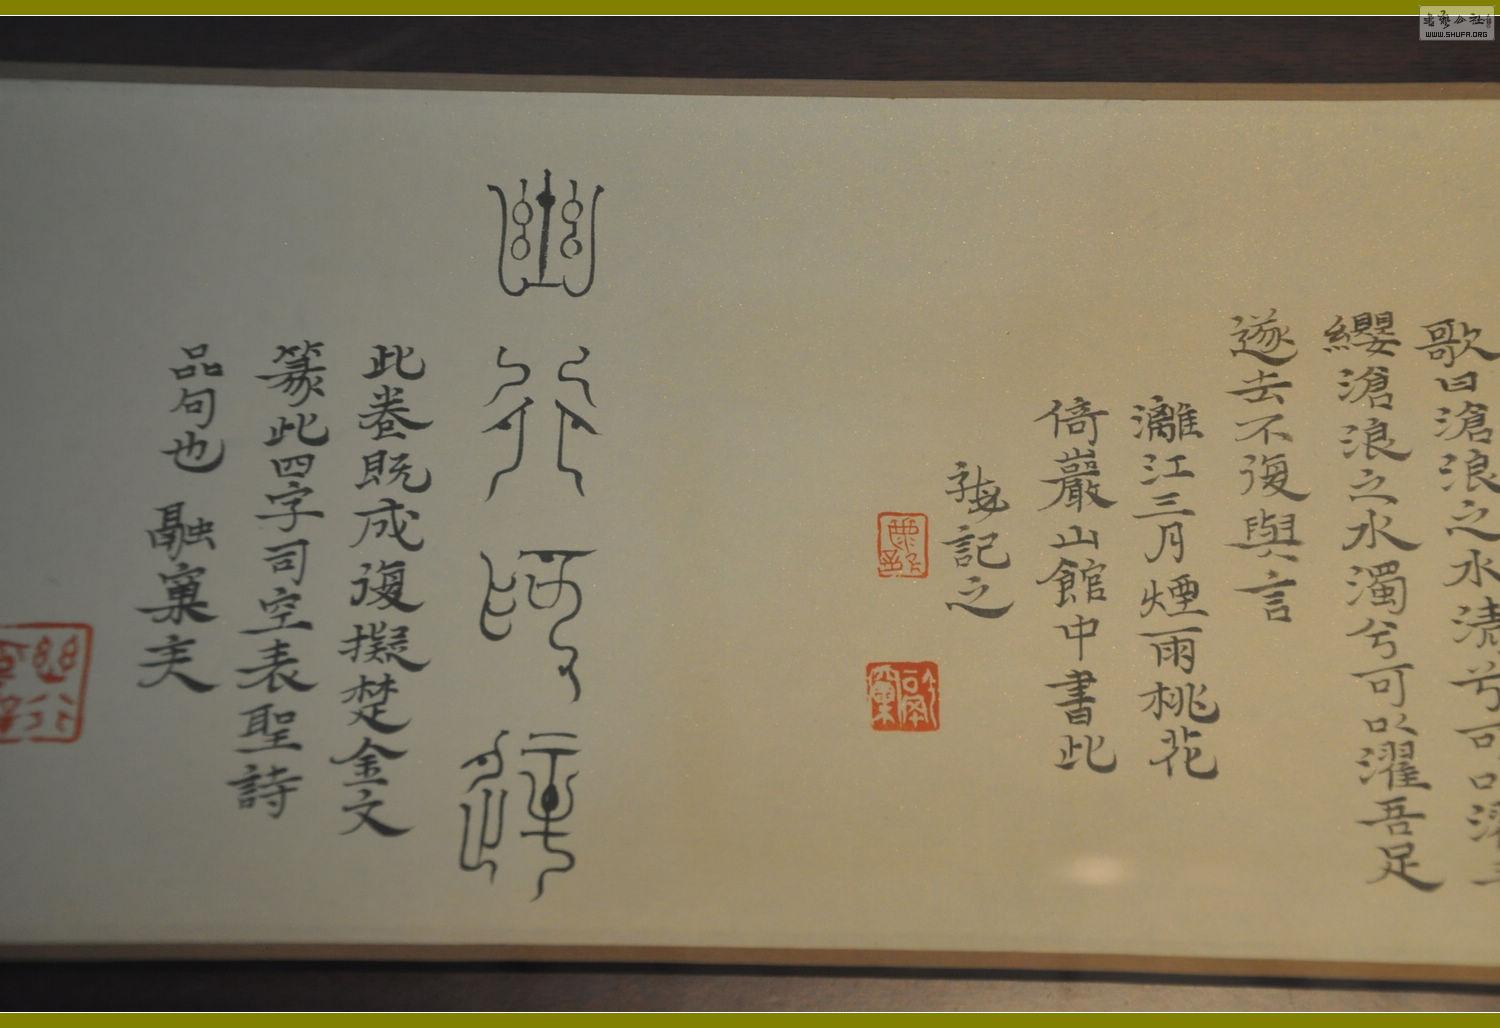 歌曰滄浪之水清兮可以濯吾
纓滄浪之水濁兮可以濯吾足
遂去不復與言
灕江三月煙雨桃花
倚巖山館中書此
記之
幽行
此卷既成復擬楚金文
篆此四字司空表聖詩
品句也 融
WWW.SHUFA.ORG